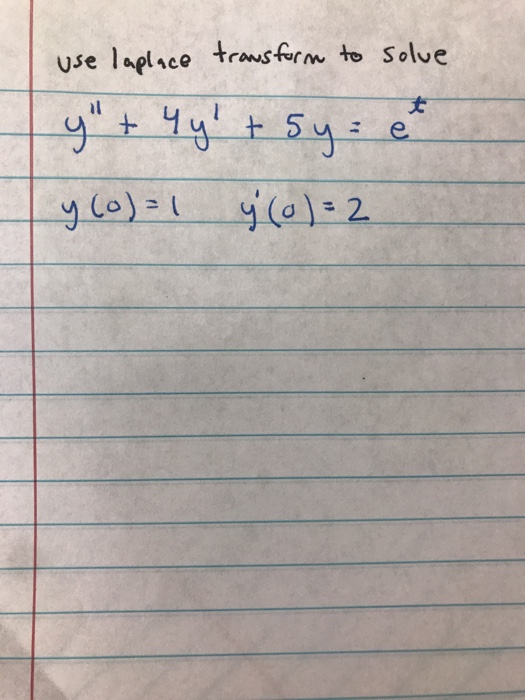 use laplace transform to solve
y" + 4y' + 5y = e^t
y(0) = 1 y'(0) = 2